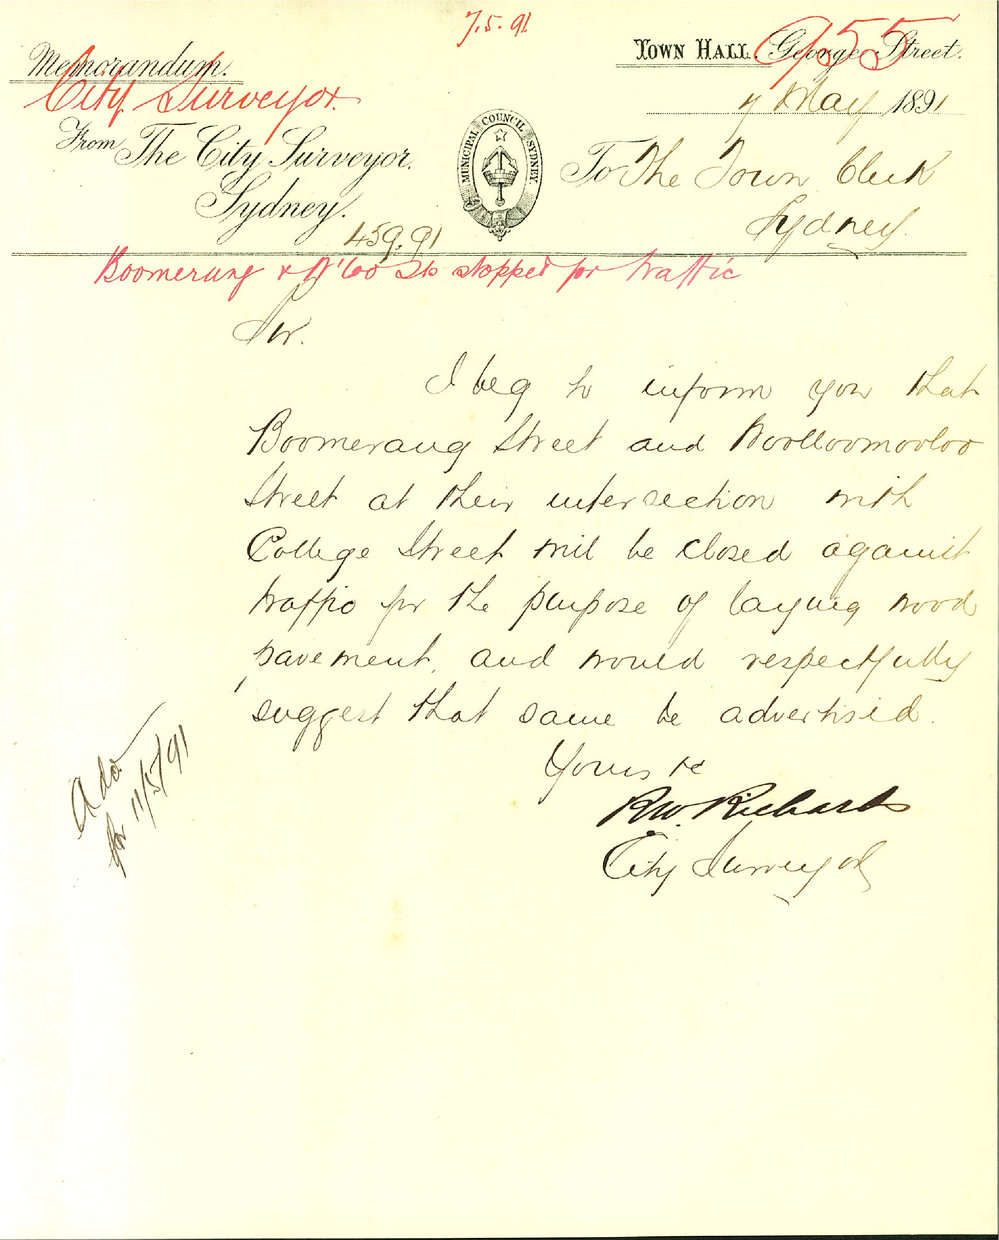 7.5.91
TOWN HALL. George Street.
955
Memorandum.
City Surveyor
7 May 1891
From The City Surveyor.
Sydney.
MUNICIPAL COUNCIL SYDNEY.
To The Town Clerk
Sydney.
459.91
Boomerang & W'loo Sts stopped for traffic
Sir.
I beg to inform you that
Boomerang Street and Woolloomooloo
Street at their intersection with
College Street will be closed against
traffic for the purpose of laying wood
pavement, and would respectfully
suggest that same be advertised.
Yours &c
RW. Richards
City Surveyor
Ado
for 11/5/91